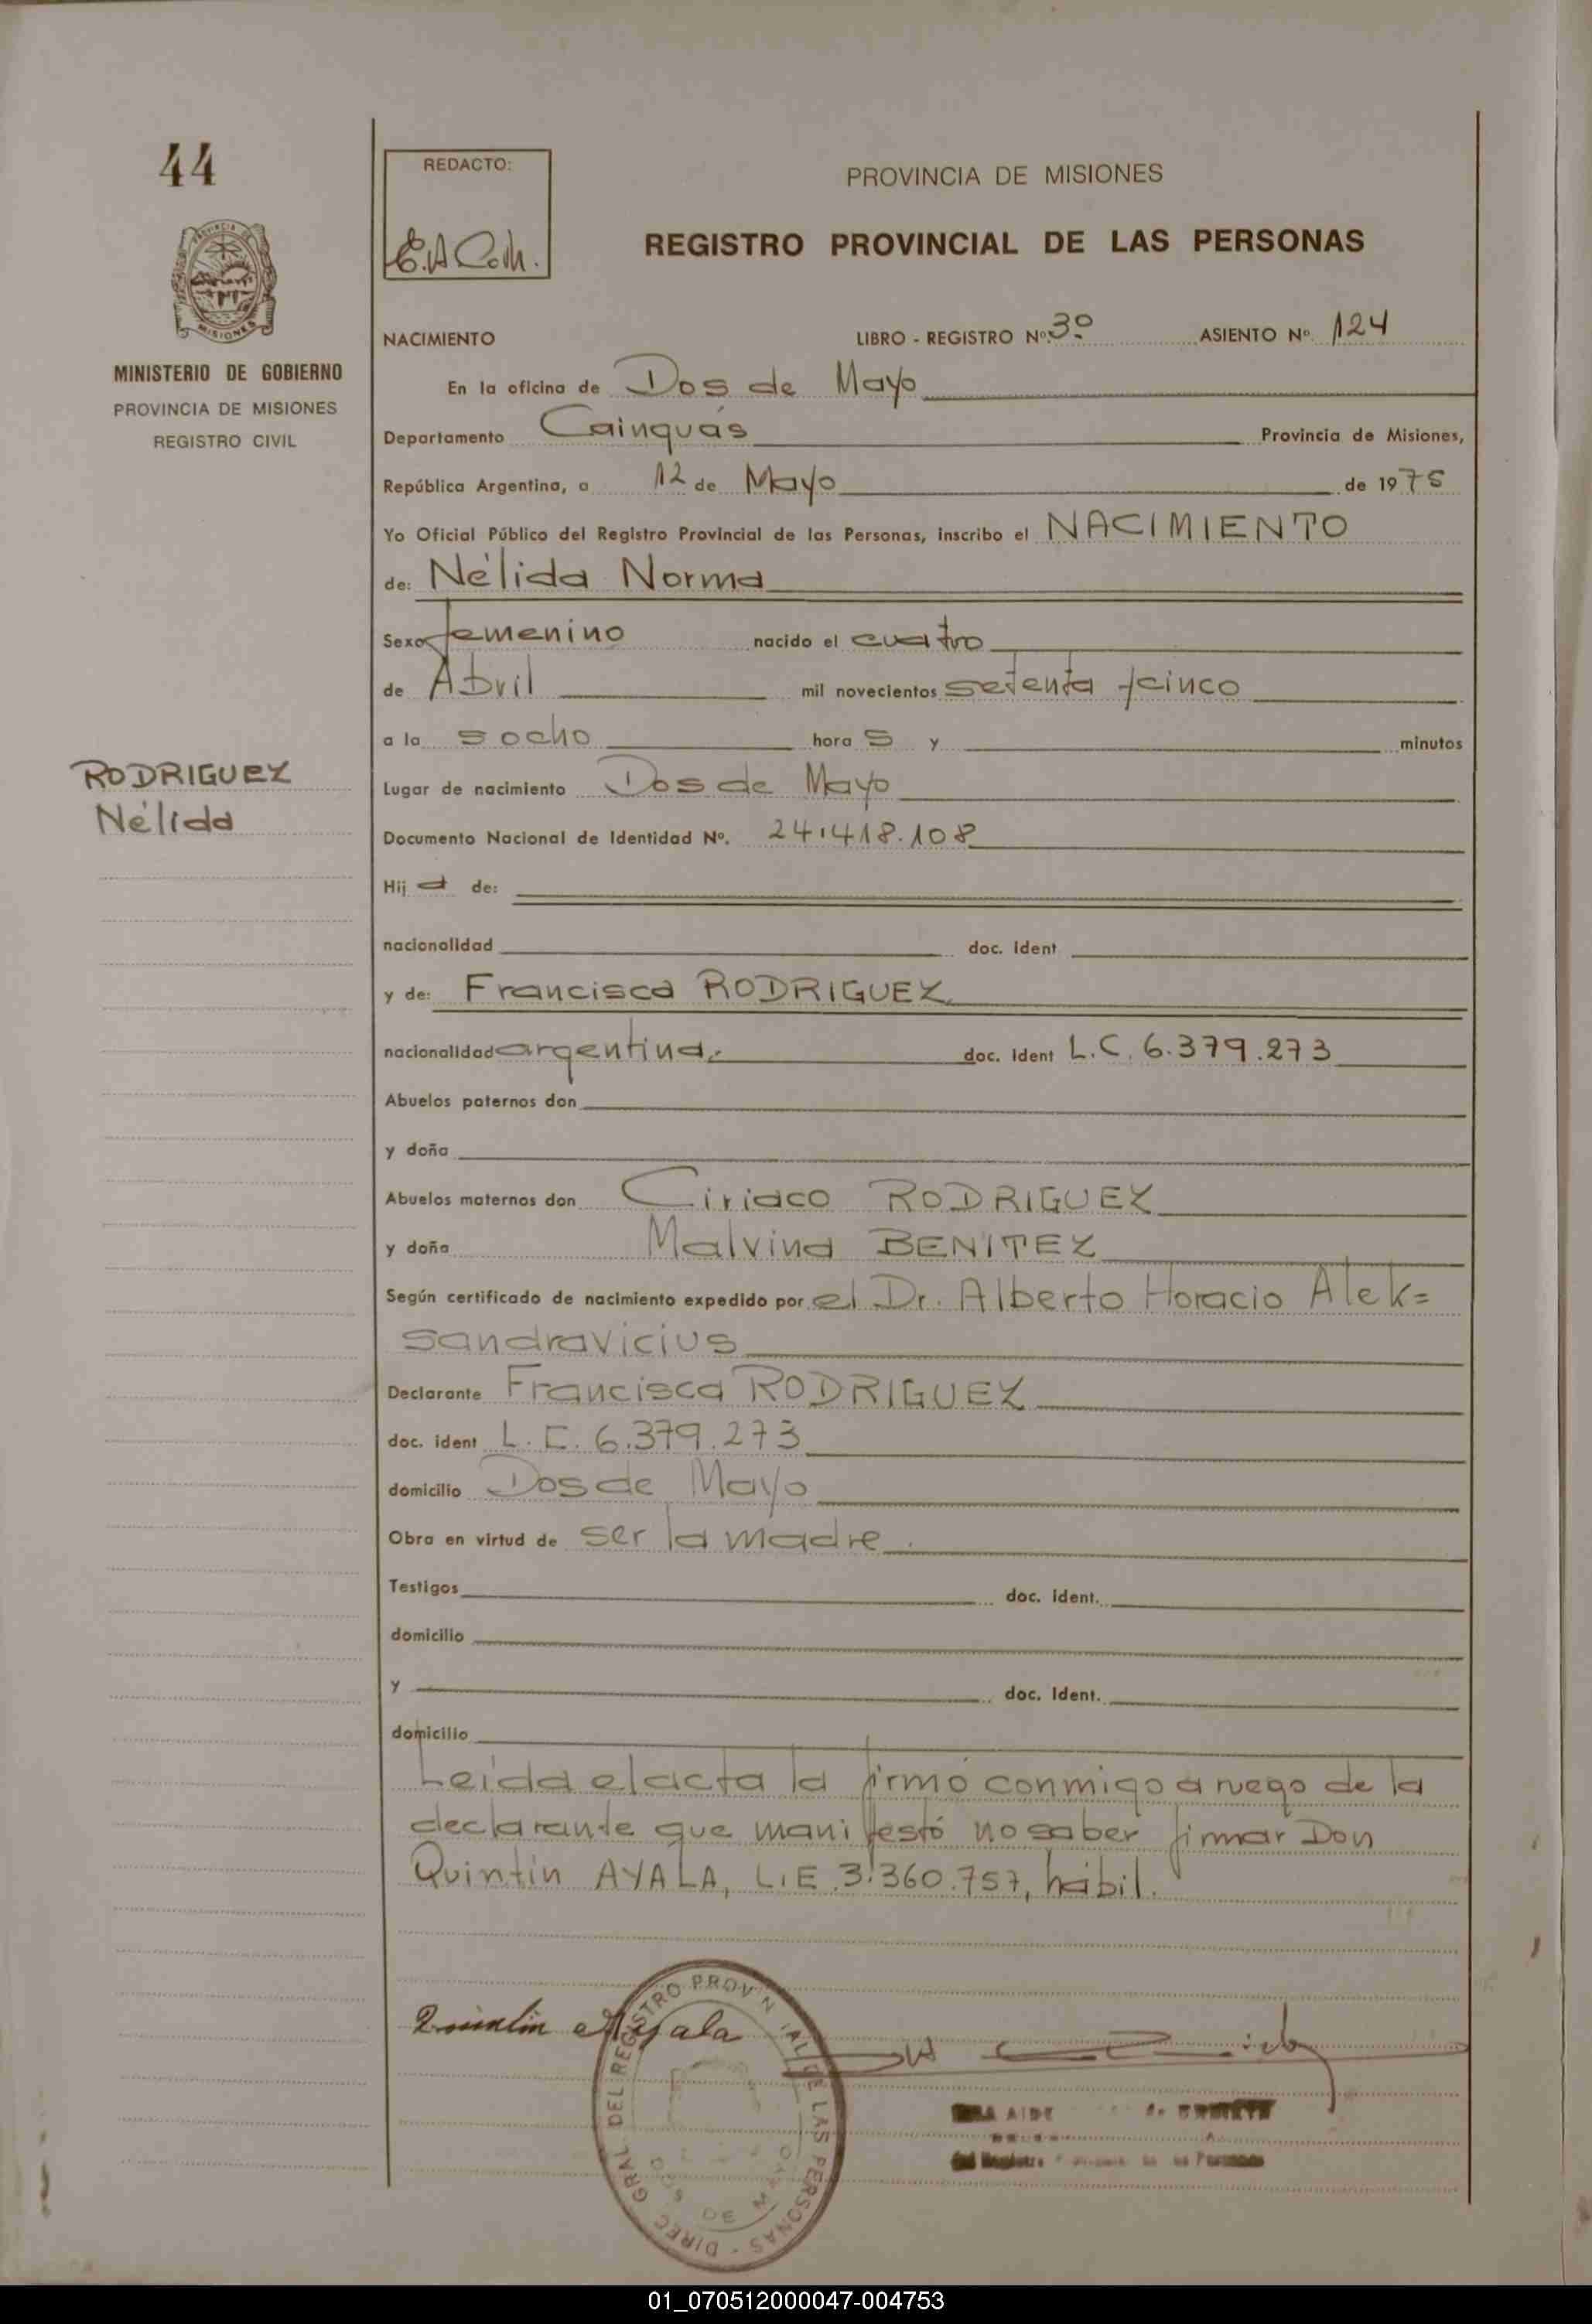 44
REDACTO:
E.A Coch.
PROVINCIA DE MISIONES
REGISTRO PROVINCIAL DE LAS PERSONAS
MISIONES
MINISTERIO DE GOBIERNO
PROVINCIA DE MISIONES
REGISTRO CIVIL
NACIMIENTO LIBRO - REGISTRO Nº 3º ASIENTO Nº 124
En la oficina de Dos de Mayo
Departamento Cainguás Provincia de Misiones,
República Argentina, a 12 de Mayo de 1975
Yo Oficial Público del Registro Provincial de las Personas, inscribo el NACIMIENTO
de: Nélida Norma
Sexo femenino nacido el cuatro
de Abril mil novecientos setenta y cinco
a la s ocho hora s y minutos
RODRIGUEZ
Nélida
Lugar de nacimiento Dos de Mayo
Documento Nacional de Identidad Nº. 24.418.108
Hij a de:
nacionalidad doc. ident
y de: Francisca RODRIGUEZ
nacionalidad argentina. doc. ident L.C. 6.379.273
Abuelos paternos don
y doña
Abuelos maternos don Ciriaco RODRIGUEZ
y doña Malvina BENITEZ
Según certificado de nacimiento expedido por el Dr. Alberto Horacio Alek=
sandravicius
Declarante Francisca RODRIGUEZ
doc. ident L.C. 6.379.273
domicilio Dos de Mayo
Obra en virtud de ser la madre.
Testigos doc. ident.
domicilio
y doc. ident.
domicilio
Leída el acta la firmó conmigo a ruego de la
declarante que manifestó no saber firmar Don
Quintín AYALA, L.E. 3.360.757, hábil.
Quintin Ayala
DIREC. GRAL. DEL REGISTRO PROVINCIAL DE LAS PERSONAS
DOS DE MAYO
01_070512000047-004753